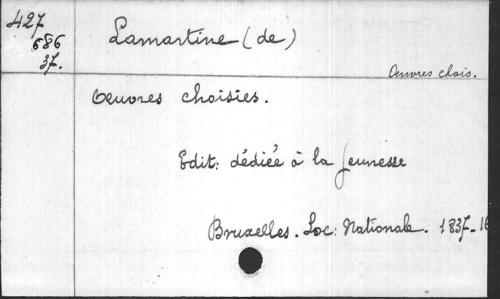 427
686
37.
Lamartine (de)
Oeuvres chois.
Oeuvres choisies.
Edit: dédiée à la jeunesse
Bruxelles. Soc: Nationale. 1837-16